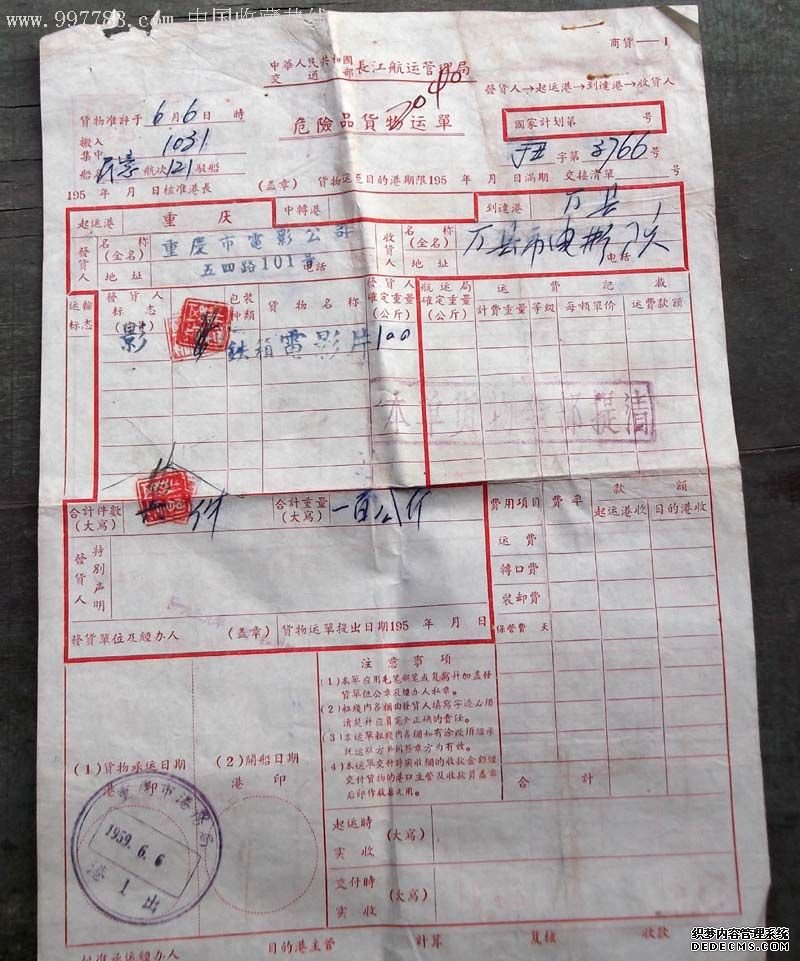 www.997788.com 中国收藏热线
商貨——1
中華人民共和國
交通部
長江航运管理局
發貨人→起运港→到達港→收貨人
3040
貨物准許于 6月6日 時
危險品貨物运單
國家計划第 號
搬入
集中 1031
船 航次121駁船
字第3766号
195 年 月 日核准港長 (蓋章) 貨物运至目的港期限195 年 月 日滿期 交接清單 号
起运港 重庆 中轉港 到達港 万县
發貨人 名称(全名) 重慶市電影公司
地址 五四路101号 電話
收貨人 名称(全名) 万县市电影
地址 電話
运輸标志 發貨人标志 包装种類 貨物名称 發貨人確定重量(公斤) 航运局確定重量(公斤) 运費記載
計費重量 等級 每頓單价 运費款額
影 鉄箱 電影片 100
本單貨物全部提清
合計件數(大寫) 件 合計重量(大寫) 一百公斤
費用項目 費率 款額
起运港收 目的港收
运費
轉口費
装卸費
保管費 天
合計
發貨人特別声明
發貨單位及經办人 (蓋章) 貨物运單提出日期195 年 月 日
注意事項
(1)本單应用毛笔鋼笔或复寫并加蓋發
貨單位公章及經办人私章。
(2)粗綫内各欄由發貨人填寫字迹必須
清楚并应負完全正確的責任。
(3)本运單粗綫内各欄如有涂改須經承
託运双方共同签章方为有效。
(4)本运單交付時实收欄的收款金額經
交付貨物的港口主管及收款員蓋章
后即作收据之用。
(1)貨物承运日期
港
(2)開船日期
港 印
重慶市港務局
1959.6.6
港1出
起运時
实收 (大寫)
交付時
实收 (大寫)
批准承运經办人 目的港主管 計算 复核 收款
织梦内容管理系统
DEDECMS.COM